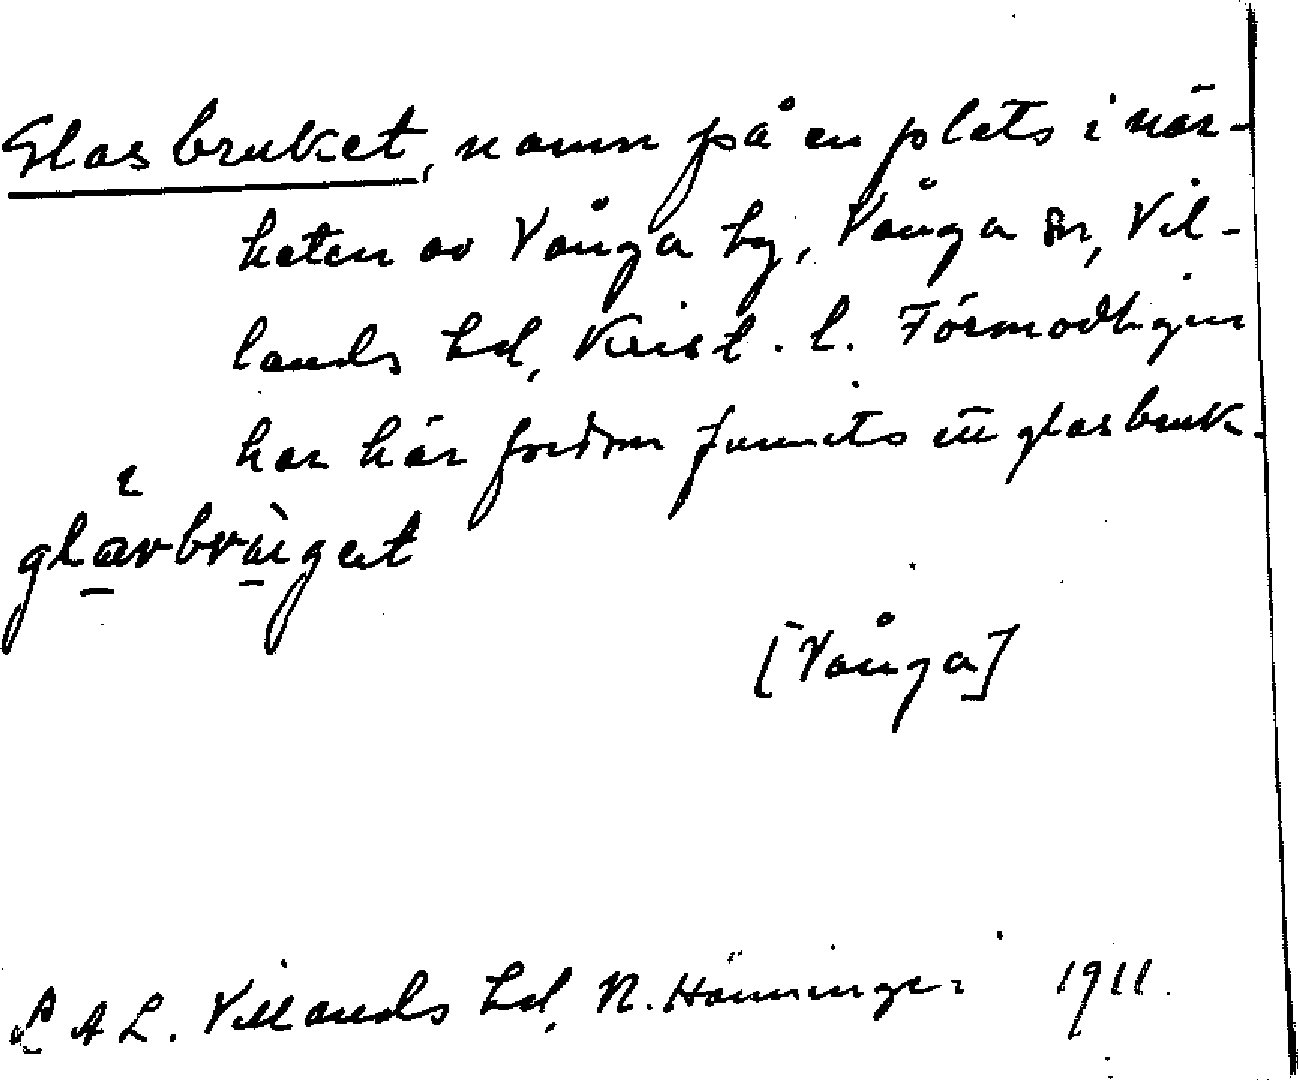 Glasbruket, namn på en plats i när-
heten av Vånga by, Vånga sn, Vil-
lands hd, Krist. l. Förmodligen
har här fordom funnits ett glasbruk.
[Vånga]
L A L. Villands hd, N. Hänninger 1911.